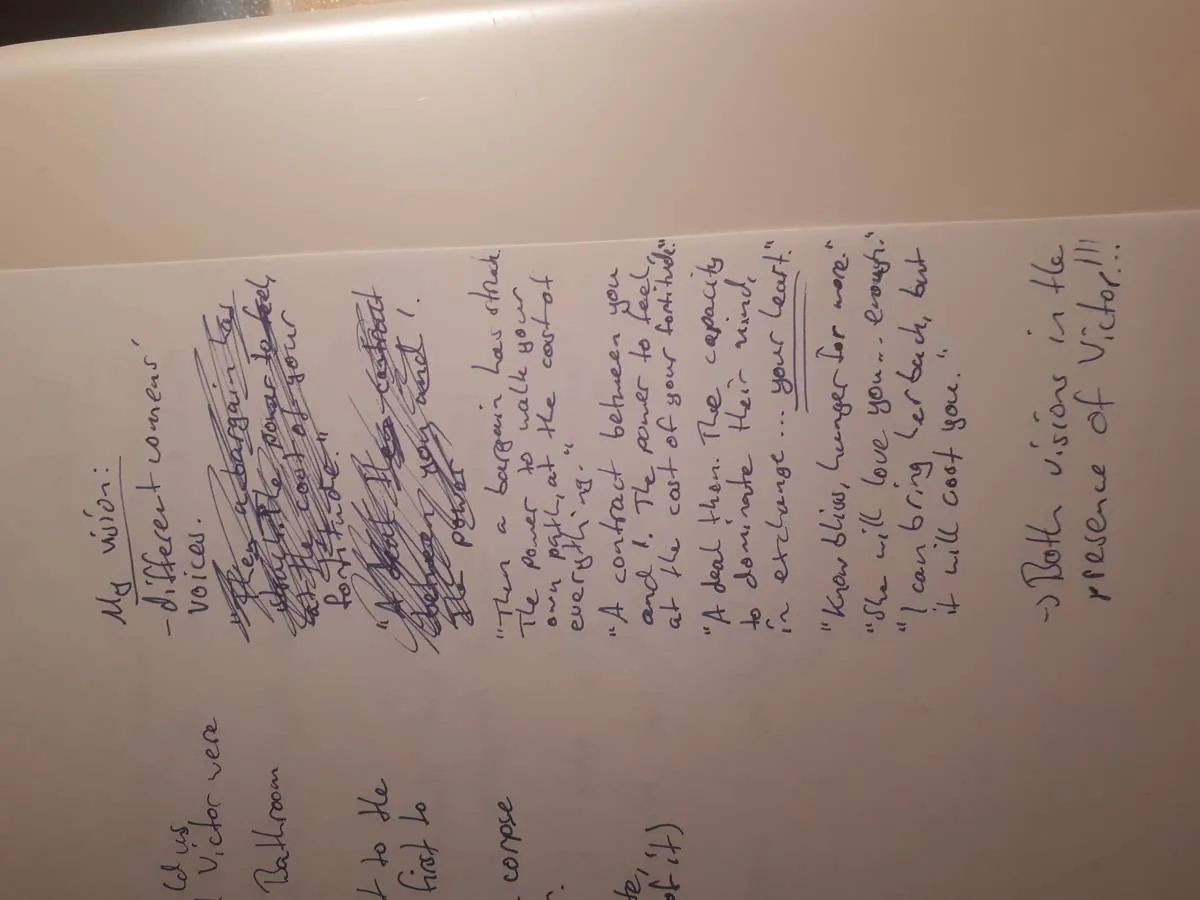 ld us
Victor were
Bathroom
t to the
first to
corpse
te,
of it)
My vision:
- different womens'
voices.
"Then a bargain has
the power to feel,
at the cost of your
fortitude."
"A deal then contract
between you and I.
The power
"Then a bargain has struck.
The power to walk your
own path, at the cost of
everything."
"A contract between you
and I. The power to feel,
at the cost of your fortitude."
"A deal then. The capacity
to dominate their mind,
in exchange... your heart."
"Know bliss, hunger for more."
"She will love you... enough."
"I can bring her back, but
it will cost you."
-> Both visions in the
presence of Victor!!!